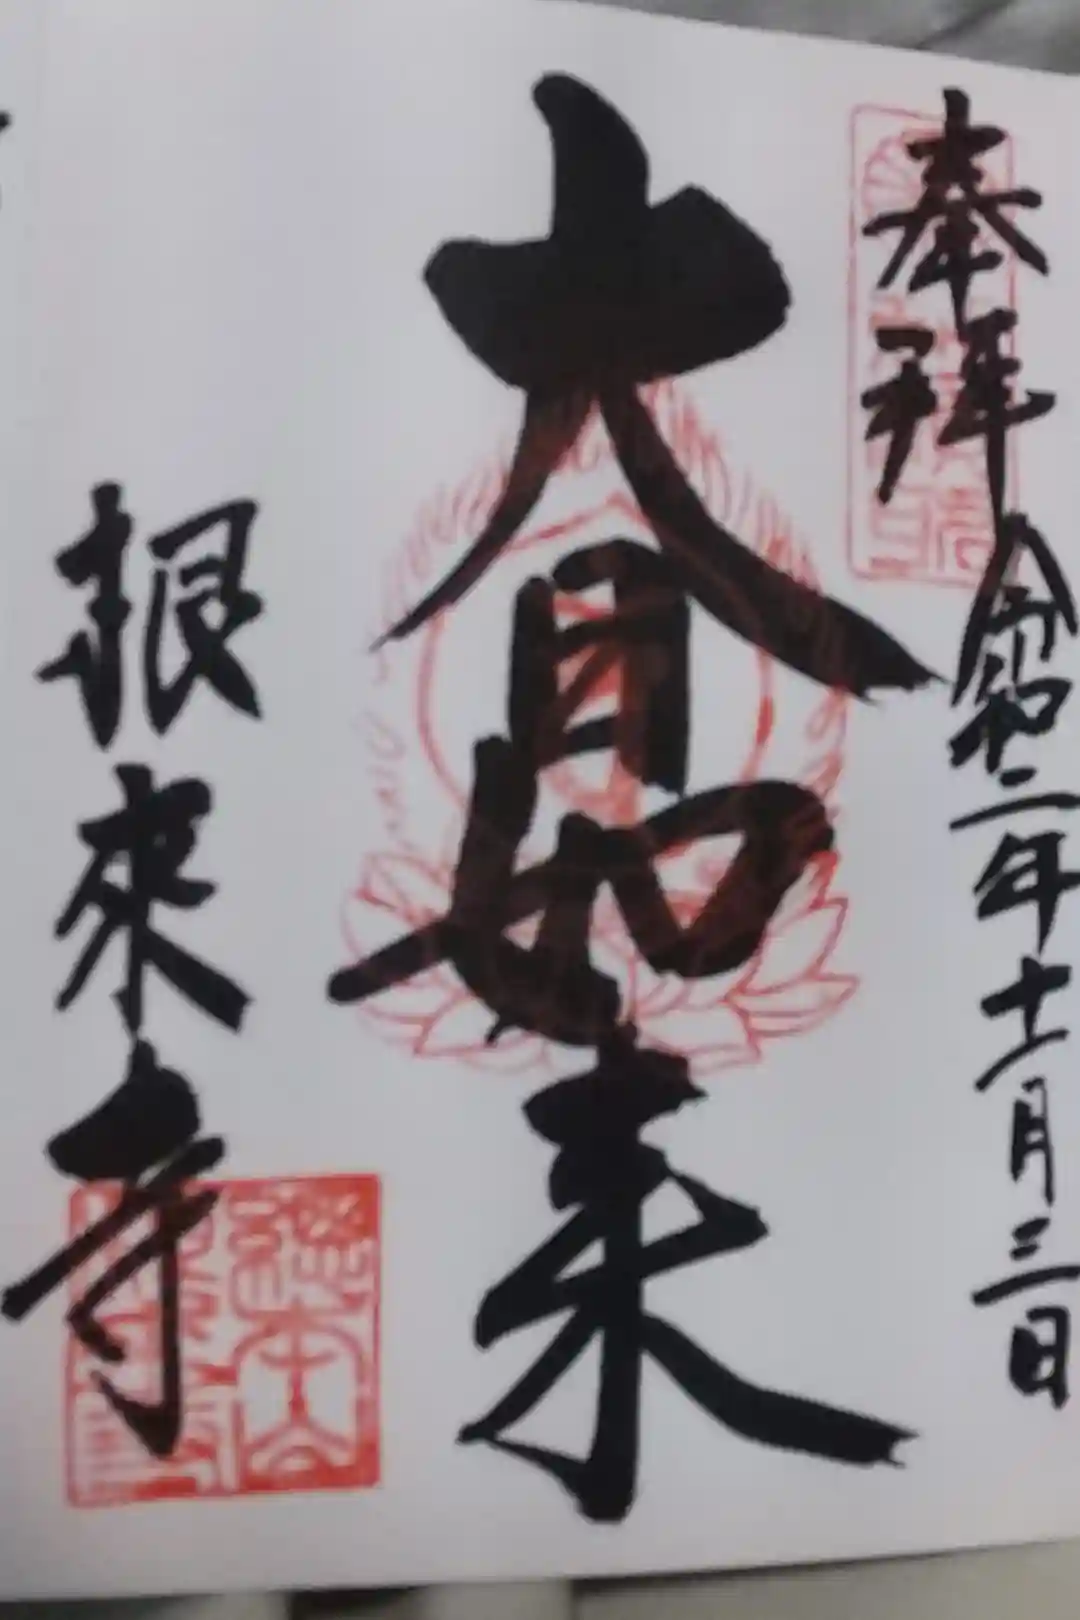 奉拝
令和二年十一月三日
大日如来
根來寺
總本山